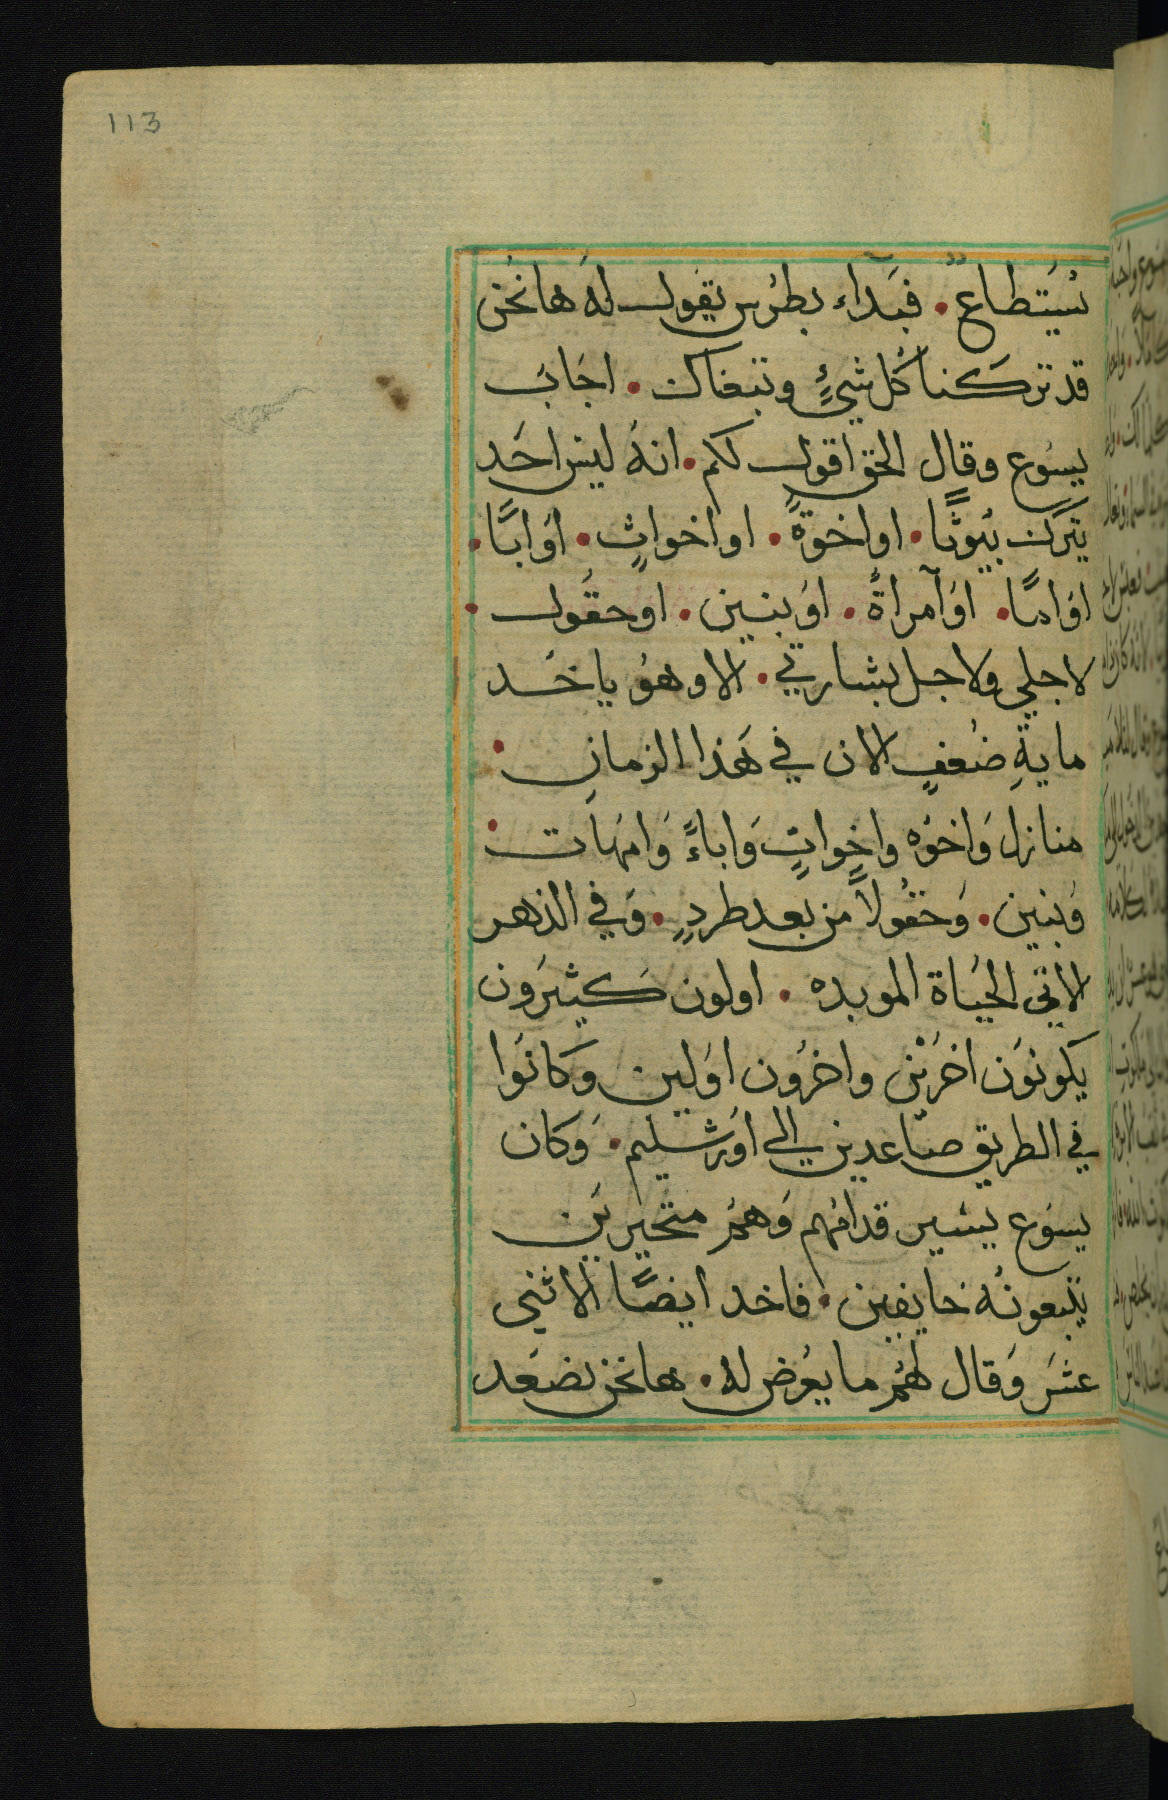 113
يُستطاع. فبَداء بطرُس يقول لهُ ها نحن
قد تركنا كُل شيءٍ وتبعناك. اجَابَ
يسُوع وقال الحق اقول لكم. انهُ ليس احَد
يترك بُيوتًا. او اخوةً. او اخواتٍ. اوَ ابًا.
اوَ امًا. اوَ آمراةً. اوَ بنين. او حقُول.
لاجلي ولاجل بشارتي. الا وهوُ ياخَد
مايةِ ضُعفٍ الان في هَذا الزمانِ.
منازل وَاخوُه واخِواتٍ وَاباءً وَامهَات.
وَبنين. وَحقُولاً من بعد طردٍ. وَفي الدهر
الاتي الحيَاة الموبده. اولون كَثيرَون
يكونوَن اخرَين واخرُون اوَلين وَكانوَا
في الطريق صَاعدين الي اوَرشليم. وَكان
يسوَع يسَير قدامَهم وَهمُ متحيرين
يتبعونُه خايفين. فاخد ايضًا الاثني
عشَر وَقال لهُم ما يعُرض له. ها نحن نصَعد